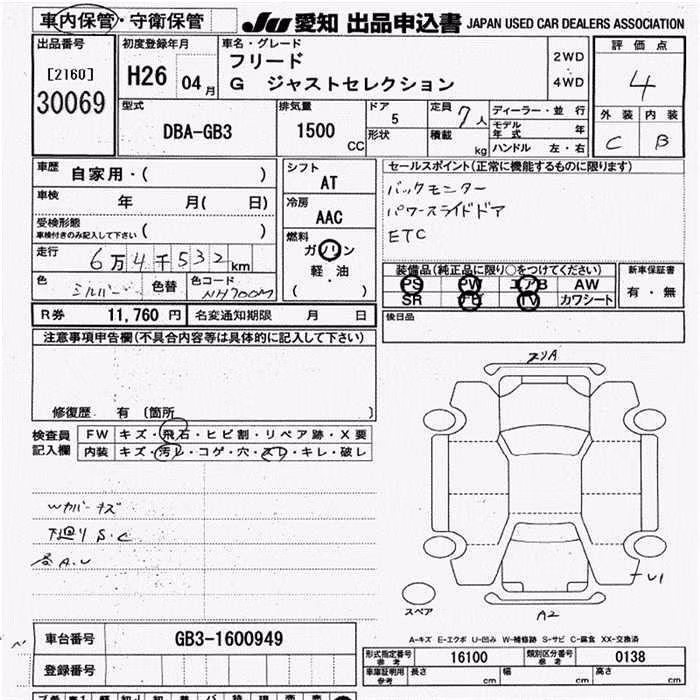 車内保管・守衛保管
JU 愛知 出品申込書 JAPAN USED CAR DEALERS ASSOCIATION
出品番号
[2160]
30069
初度登録年月
H26 04月
車名・グレード
フリード
G ジャストセレクション
2WD
4WD
評価点
4
外装 内装
C B
型式
DBA-GB3
排気量
1500 CC
ドア
5
形状
定員 7人
積載 kg
ディーラー・並行
モデル年式 年
ハンドル 左・右
車歴 自家用・( )
車検 年 月( 日)
受検形態
車検付きのみ記入して下さい ( )
走行 6万4千532km
色 シルバー 色替 色コード NH700M
シフト
AT
冷房
AAC
燃料
ガソリン
軽・油
( )
セールスポイント(正常に機能するものに限ります)
バックモニター
パワースライドドア
ETC
装備品(純正品に限り○をつけてください)
PS PW エアB AW
SR ナビ TV カワシート
新車保証書
有・無
R券 11,760円 名変通知期限 月 日
後日品
注意事項申告欄(不具合内容等は具体的に記入して下さい)
修復歴 有 〔箇所 〕
検査員記入欄
FW キズ・飛石・ヒビ割・リペア跡・X要
内装 キズ・汚レ・コゲ・穴・スレ・キレ・破レ
Wカバーキズ
下廻りS.C
各A.U
スリA
U1
A2
スペア
A-キズ E-エクボ U-凹み W-補修跡 S-サビ C-腐食 XX-交換済
車台番号 GB3-1600949
登録番号
形式指定番号
参考
16100
類別区分番号
参考
0138
車庫証明用
参考
長さ cm 幅 cm 高さ cm